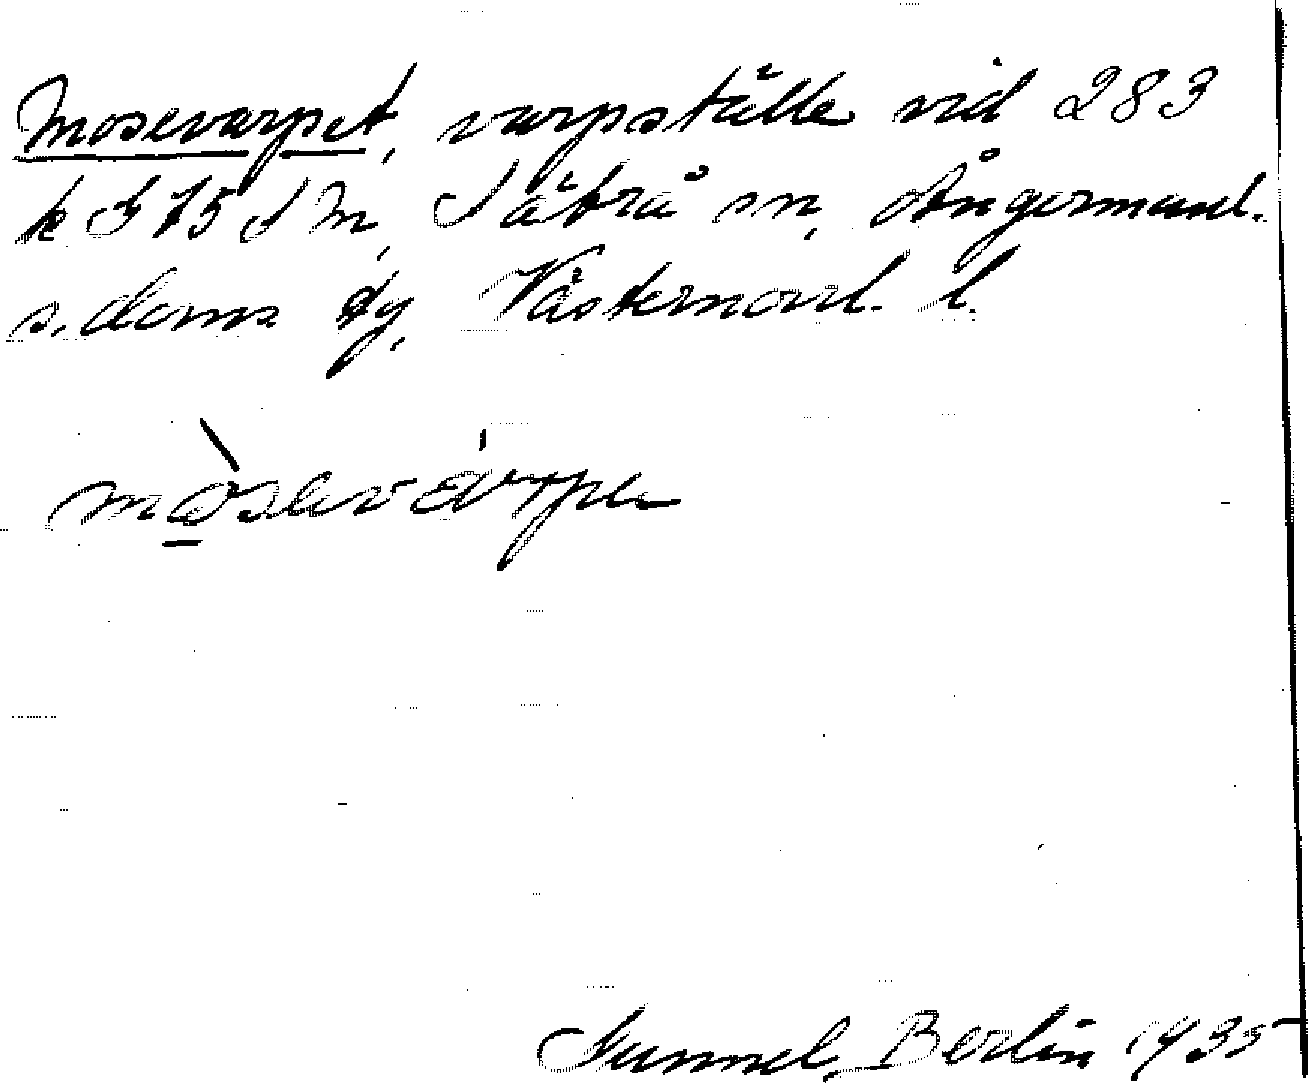 Mosevarpet, varpställe vid 283
k I 75 S M, Säbrå sn, Ångermanl.
s. doms dg, Västernorrl. l.
mòsəvárpə
Sunnel, Berlin 1935